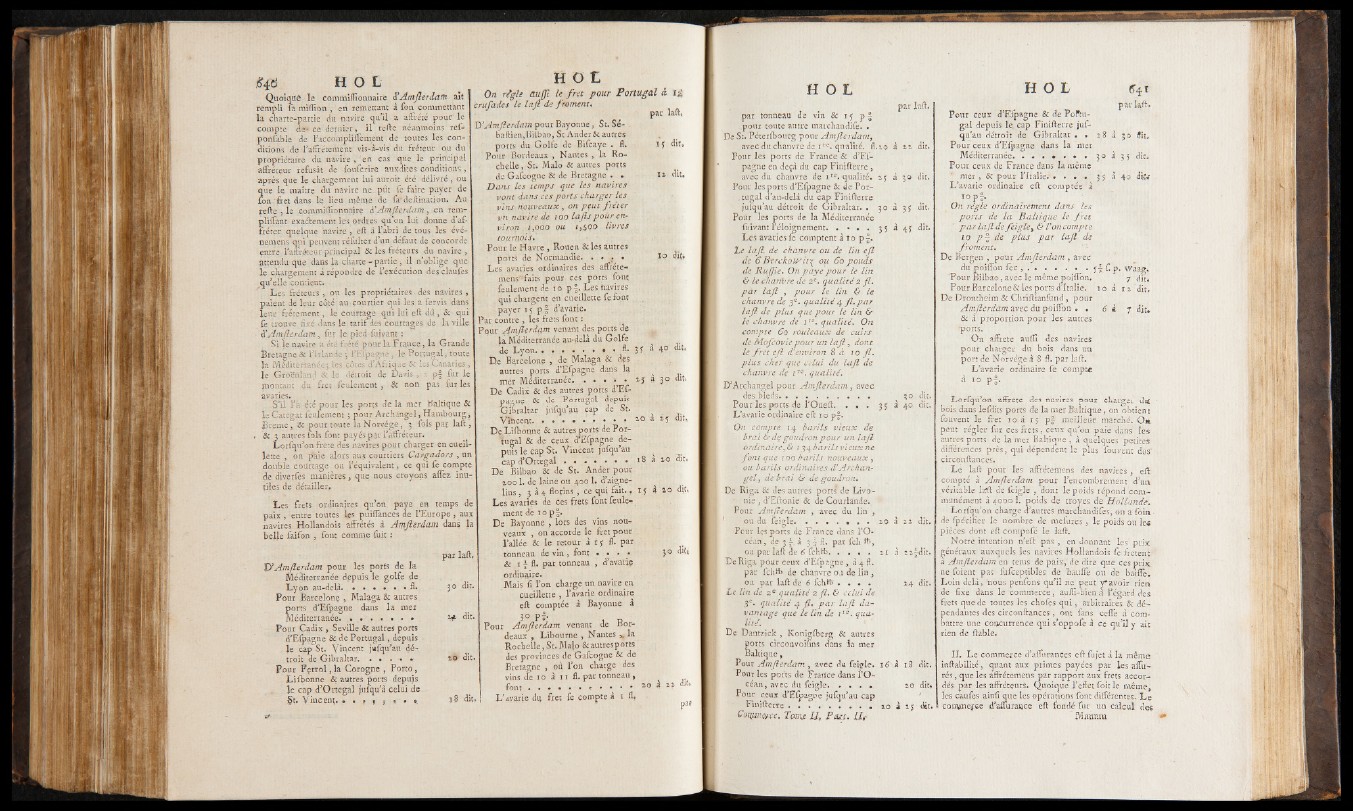 640 HOL
Quoique le commissionnaire d'Amsterdam ait
rempli sa mission, en remettant à son commettant
la charte-partie du navire qu'il a affrété pour le
compte de ce dernier, il reste néanmoins res-
ponsable de l'accomplissement de toutes les con-
ditions de l'affrètement vis-à-vis du fréteur ou du
propriétaire du navire, en cas que le principal
affréteur refusât de souscrire auxdites conditions,
après que le chargement lui auroit été délivré, ou
que le maître du navire ne pût se faire payer de
son fret dans le lieu même de sa destination. Au
reste, le commissionnaire d'Amsterdam, en rem-
plissant exactement les ordres qu'on lui donne d'af-
fréter quelque navire, est à l'abri de tous les évé-
nemens qui peuvent résulter d'un défaut de concorde
entre l'affréteur principal & les fréteurs du navire,
attendu que dans la charte-partie, il n'oblige que
le chargement à répondre de l'exécution des clauses
qu'elle contient.
Les fréteurs, ou les propriétaires des navires,
paient de leur côté au courtier qui les a servis dans
leur frétement, le courtage qui lui est dû, & qui
se trouve fixé dans le tarif des courtages de la ville
d'Amsterdam, sur le pied suivant:
Si le navire a été frété pour la France, la Grande
Bretagne & l'Irlande; l'Espagne, le Portugal, toute
la Méditerranée; les côtes d'Afrique & les Canaries,
le Groënland & le détroit de Davis, p° sur le
montant du fret seulement, & non pas sur les
avaries.
S'il l'a été pour les ports de la mer Baltique &
le Categat seulement; pour Archangel, Hambourg,
Breme, & pour toute la Norvége, 3 sols par last,
& 3 autres sols sont payés par l'affréteur.
Lorsqu'on frete des navires pour charger en cueil-
lette, on paie alors aux courtiers Cargadors, un
double courtage ou l'équivalent, ce qui se compte
de diverses manières, que nous croyons assez inu-
tiles de détailler.
Les frets ordinaires qu'on paye en temps de
paix, entre toutes les puissances de l'Europe, aux
navires Hollandois affrétés à Amsterdam dans la
belle saison, sont comme suit:
par last.
D'Amsterdam pour les ports de la
Méditerranée depuis le golfe de
Lyon au-delà. . . . . . . fl. 30 dit.
Pour Barcelone, Malaga & autres
ports d'Espagne dans la mer
Méditerranée. . . . . . . 24 dit.
Pour Cadix, Seville & autres ports
d'Espagne & de Portugal, depuis
le cap St. Vincent jusqu'au dé-
troit de Gibraltar. . . . . . 20 dit.
Pour Ferrol, la Corogne, Porto,
Lisbonne & autres ports depuis
le cap d'Ortegal jusqu'à celui de
St. Vincent. . . . . . . . 18 dit.
HOL
On règle aussi le fret pour Portugal à 12
crusades le last de froment.
par last.
D'Amsterdam pour Bayonne, St. Sé-
bastien, Bilbao, St. Ander & autres
ports du Golfe de Biscaye. fl. 15 dit.
Pour Bordeaux, Nantes, la Ro-
chelle, St. Malo & autres ports
de Gascogne & de Bretagne. . 12 dit.
Dans les temps que les navires
vont dans ces ports charger les
vins nouveaux, on peut fréter
un navire de 100 lasts pour en-
viron 1,000 ou 1,500 livres
tournois.
Pour le Havre, Rouen & les autres
ports de Normandie. . . . . 10 dit.
Les avaries ordinaires des affréte-
mens faits pour ces ports sont
seulement de 10 p°. Les navires
qui chargent en cueillette se font
payer 15 p° d'avarie.
Par contre, les frets sont:
Pour Amsterdam venant des ports de
la Méditerranée au-delà du Golfe
de Lyon. . . . . . . . fl. 35 à 40 dit.
De Barcelone, de Malaga & des
autres ports d'Espagne dans la
mer Méditerranée. . . . . . 25 à 30 dit.
De Cadix & des autres ports d'Es-
pagne & de Portugal depuis
Gibraltar jusqu'au cap de St.
Vincent. . . . . . . . . 20 à 25 dit.
De Lisbonne & autres ports de Por-
tugal & de ceux d'Espagne de-
puis le cap St. Vincent jusqu'au
cap d'Ortegal . . . . . . . 18 à 20 dit.
De Bilbao & de St. Ander pour
200 l. de laine ou 400 l. d'aigne-
lins, 3 à 4 florins, ce qui fait. . 15 à 20 dit.
Les avaries de ces frets sont seule-
ment de 10 p°.
De Bayonne, lors des vins nou-
veaux, on accorde le fret pour
l'allée & le retour à 15 fl. par
tonneau de vin, font . . . . 30 dit.
& 1 ½ fl. par tonneau, d'avarie
ordinaire.
Mais si l'on charge un navire en
cueillette, l'avarie ordinaire
est comptée à Bayonne à
30 p°.
Pour Amsterdam venant de Bor-
deaux, Libourne, Nantes, la
Rochelle, St. Malo & autres ports
des provinces de Gascogne & de
Bretagne, où l'on charge des
vins de 10 à 11 fl. par tonneau,
font . . . . . . . . . . 20 à 22 dit.
L'avarie du fret se compte à 1 fl.
par
HOL
par last.
par tonneau de vin & 15 p°
pour toute autre marchandise. .
De St. Pétersbourg pour Amsterdam,
avec du chanvre de 1re. qualité. fl. 20 à 22 dit.
Pour les ports de France & d'Es-
pagne en deçà du cap Finisterre,
avec du chanvre de 1re. qualité. 25 à 30 dit.
Pour les ports d'Espagne & de Por-
tugal d'au-delà du cap Finisterre
jusqu'au détroit de Gibraltar. . 30 à 35 dit.
Pour les ports de la Méditerranée
suivant l'éloignement. . . . . 35 à 45 dit.
Les avaries se comptent à 10 p°.
Le last de chanvre ou de lin est
de 6 Berckowitz ou 60 pouds
de Russie. On paye pour le lin
& le chanvre de 2e. qualité 2 fl.
par last, pour le lin & le
chanvre de 3e. qualité 4 fl. par
last de plus que pour le lin &
le chanvre de 1re. qualité. On
compte 60 rouleaux de cuirs
de Moscovie pour un last, dont
le fret est d'environ 8 à 10 fl.
plus cher que celui du last de
chanvre de 1re. qualité.
D'Archangel pour Amsterdam, avec
des bleds. . . . . . . . . 30 dit.
Pour les ports de l'Ouest. . . . 35 à 40 dit.
L'avarie ordinaire est 10 p°.
On compte 14 barils vieux de
brai & de goudron pour un last
ordinaire, & 134 barils vieux ne
font que 100 barils nouveaux,
ou barils ordinaires d'Archan-
gel, de brai & de goudron.
De Riga & des autres ports de Livo-
nie, d'Estonie & de Courlande.
Pour Amsterdam, avec du lin,
ou du seigle. . . . . . . . 20 à 22 dit.
Pour les ports de France dans l'O-
céan, de 5 ¼ à 5 ½ fl. par sch ℔,
ou par last de 6 sch℔. . . . . 21 à 22½ dit.
De Riga pour ceux d'Espagne, à 4 fl.
par sch℔ de chanvre ou de lin,
ou par last de 6 sch℔ . . . . 24 dit.
Le lin de 2e qualité 2 fl. & celui de
3e. qualité 4 fl. par last da-
vantage que le lin de 1re. qua-
lité.
De Dantzick, Konigsberg & autres
ports circonvoisins dans la mer
Baltique,
Pour Amsterdam, avec du seigle. 16 à 18 dit.
Pour les ports de France dans l'O-
céan, avec du seigle. . . . . 20 dit.
Pour ceux d'Espagne jusqu'au cap
Finisterre . . . . . . . . 20 à 25 dit.
Commerce. Tome II, Part. II.
HOL 641
par last.
Pour ceux d'Espagne & de Portu-
gal depuis le cap Finisterre jus-
qu'au détroit de Gibraltar. . 28 à 30 dit.
Pour ceux d'Espagne dans la mer
Méditerranée. . . . . . . . 30 à 35 dit.
Pour ceux de France dans la même
mer, & pour l'Italie. . . . 35 à 40 dit.
L'avarie ordinaire est comptée à
10 p°.
On règle ordinairement dans les
ports de la Baltique le fret
par last de seigle, & l'on compte
10 p° de plus par last de
froment.
De Bergen, pour Amsterdam, avec
du poisson sec, . . . . . . . 5½ s. p. Waag.
Pour Bilbao, avec le même poisson. 7 dit.
Pour Barcelone & les ports d'Italie. 10 à 12 dit.
De Drontheim & Christiansund, pour
Amsterdam avec du poisson. . 6 à 7 dit.
& à proportion pour les autres
ports.
On affrete aussi des navires
pour charger du bois dans un
port de Norvége à 8 fl. par last.
L'avarie ordinaire se compte
à 10 p°.
Lorsqu'on affrete des navires pour charger du
bois dans lesdits ports de la mer Baltique, on obtient
souvent le fret 10 à 15 p° meilleur marché. On
peut régler sur ces frets, ceux qu'on paie dans les
autres ports de la mer Baltique, à quelques petites
différences près, qui dépendent le plus souvent des
circonstances.
Le last pour les affrétemens des navires, est
compté à Amsterdam pour l'encombrement d'un
véritable last de seigle, dont le poids répond com-
munément à 4000 l. poids de troyes de Hollande.
Lorsqu'on charge d'autres marchandises, on a soin
de spécifier le nombre de mesures, le poids ou les
pièces dont est composé le last.
Notre intention n'est pas, en donnant les prix
généraux auxquels les navires Hollandois se fretent
à Amsterdam en tems de paix, de dire que ces prix
ne soient pas susceptibles de hausse ou de baisse.
Loin delà, nous pensons qu'il ne peut y avoir rien
de fixe dans le commerce, aussi-bien à l'égard des
frets que de toutes les choses qui, arbitraires & dé-
pendantes des circonstances, ont sans cesse à com-
battre une concurrence qui s'oppose à ce qu'il y ait
rien de stable.
II. Le commerce d'assurances est sujet à la même
instabilité, quant aux primes payées par les assu-
rés, que les affrétemens par rapport aux frets accor-
dés par les affréteurs. Quoique l'effet soit le même,
les causes ainsi que les opérations sont différentes. Le
commerce d'assurance est fondé sur un calcul des
Mmmm